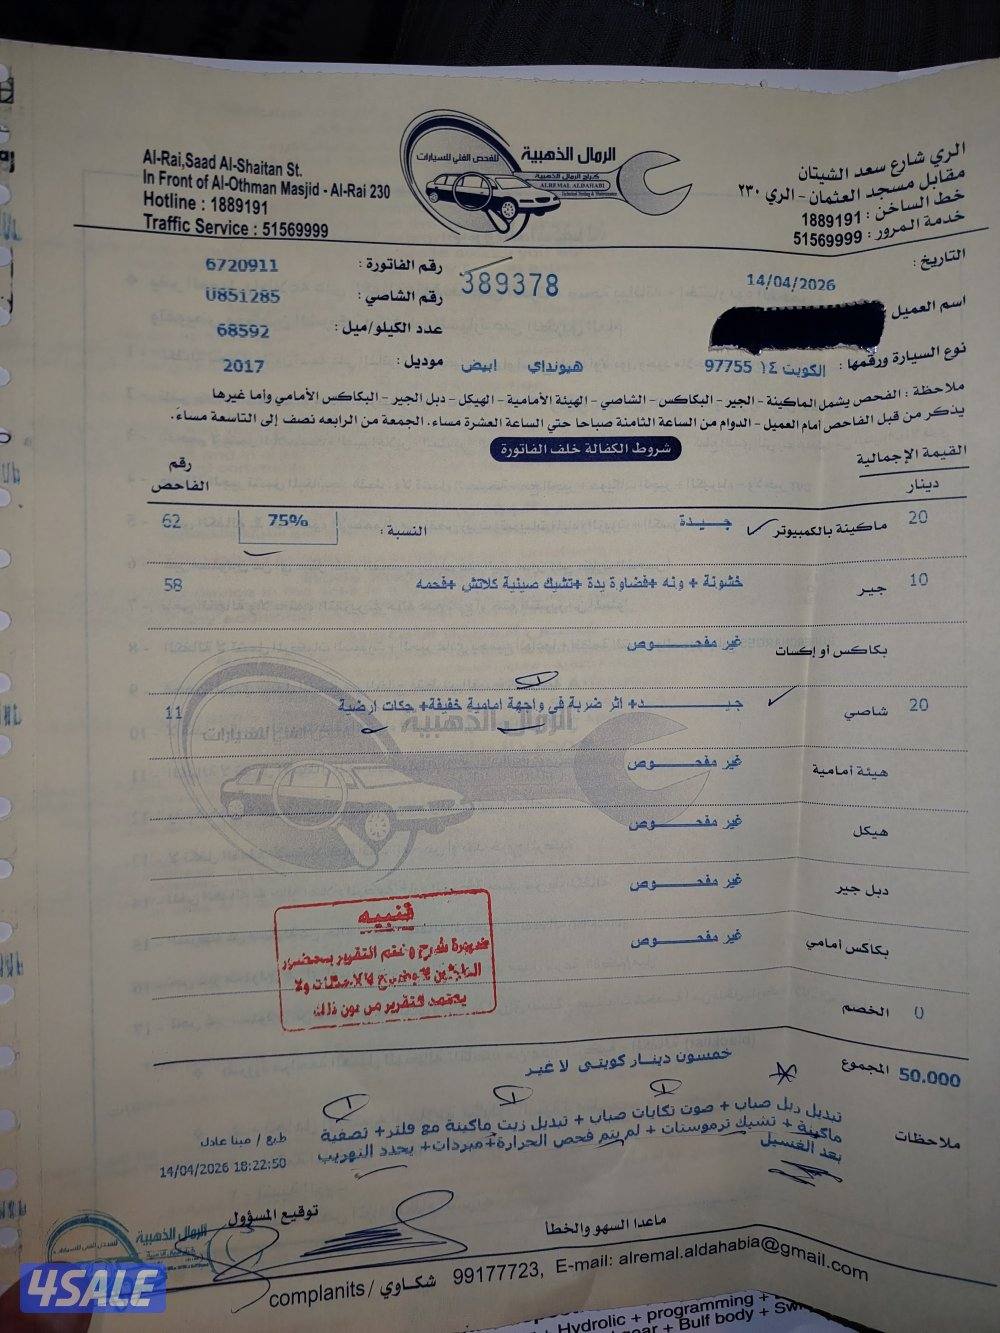 Al-Rai,Saad Al-Shaitan St.
In Front of Al-Othman Masjid - Al-Rai 230
Hotline : 1889191
Traffic Service : 51569999
الرمال الذهبية
للفحص الفني للسيارات
كراج الرمال الذهبية
ALREMAL ALDAHABI
الري شارع سعد الشيتان
مقابل مسجد العثمان - الري ٢٣٠
خط الساخن : 1889191
خدمة المرور : 51569999
التاريخ : 14/04/2026
389378
رقم الفاتورة : 6720911
اسم العميل
رقم الشاصي : U851285
عدد الكيلو/ميل : 68592
نوع السيارة ورقمها : الكويت ١٤ 97755 هيونداي ابيض
موديل : 2017
ملاحظة : الفحص يشمل الماكينة - الجير - البكاكس - الشاصي - الهيئة الأمامية - الهيكل - دبل الجير - البكاكس الأمامي وأما غيرها
يذكر من قبل الفاحص أمام العميل - الدوام من الساعة الثامنة صباحا حتي الساعة العشرة مساء. الجمعة من الرابعه نصف إلى التاسعة مساءً.
شروط الكفالة خلف الفاتورة
القيمة الإجمالية
دينار
رقم
الفاحص
20 ماكينة بالكمبيوتر جيدة النسبة : 75% 62
10 جير خشونة + ونه +فضاوة يدة+تشيك صينية كلاتش +فحمه 58
بكاكس أو إكسات غير مفحوص
20 شاصي جيد+ اثر ضربة في واجهة امامية خفيفة+ جكات ارضية 11
هيئة أمامية غير مفحوص
هيكل غير مفحوص
دبل جير غير مفحوص
بكاكس أمامي غير مفحوص
الخصم 0
المجموع 50.000 خمسون دينار كويتى لا غير
ملاحظات
تبديل دبل صباب + صوت تكايات صباب + تبديل زيت ماكينة مع فلتر+ تصفية
ماكينة + تشيك ترموستات + لم يتم فحص الحرارة+مبردات+ يحدد التهريب
بعد الغسيل
طبع / مينا عادل
14/04/2026 18:22:50
توقيع المسؤول
ماعدا السهو والخطأ
الرمال الذهبية
complanits / شكاوي 99177723, E-mail: alremal.aldahabia@gmail.com
4SALE
Hydrolic + programming +